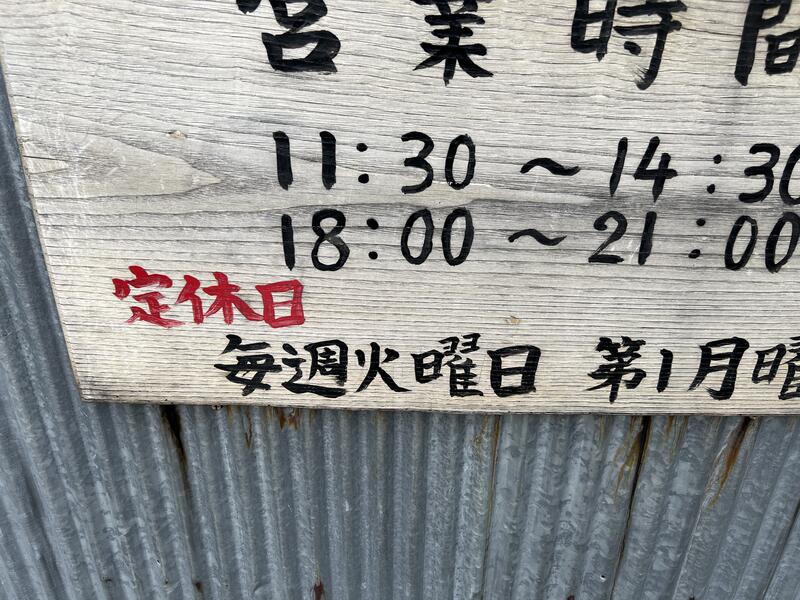 営業時間
11:30～14:30
18:00～21:00
定休日
毎週火曜日 第1月曜